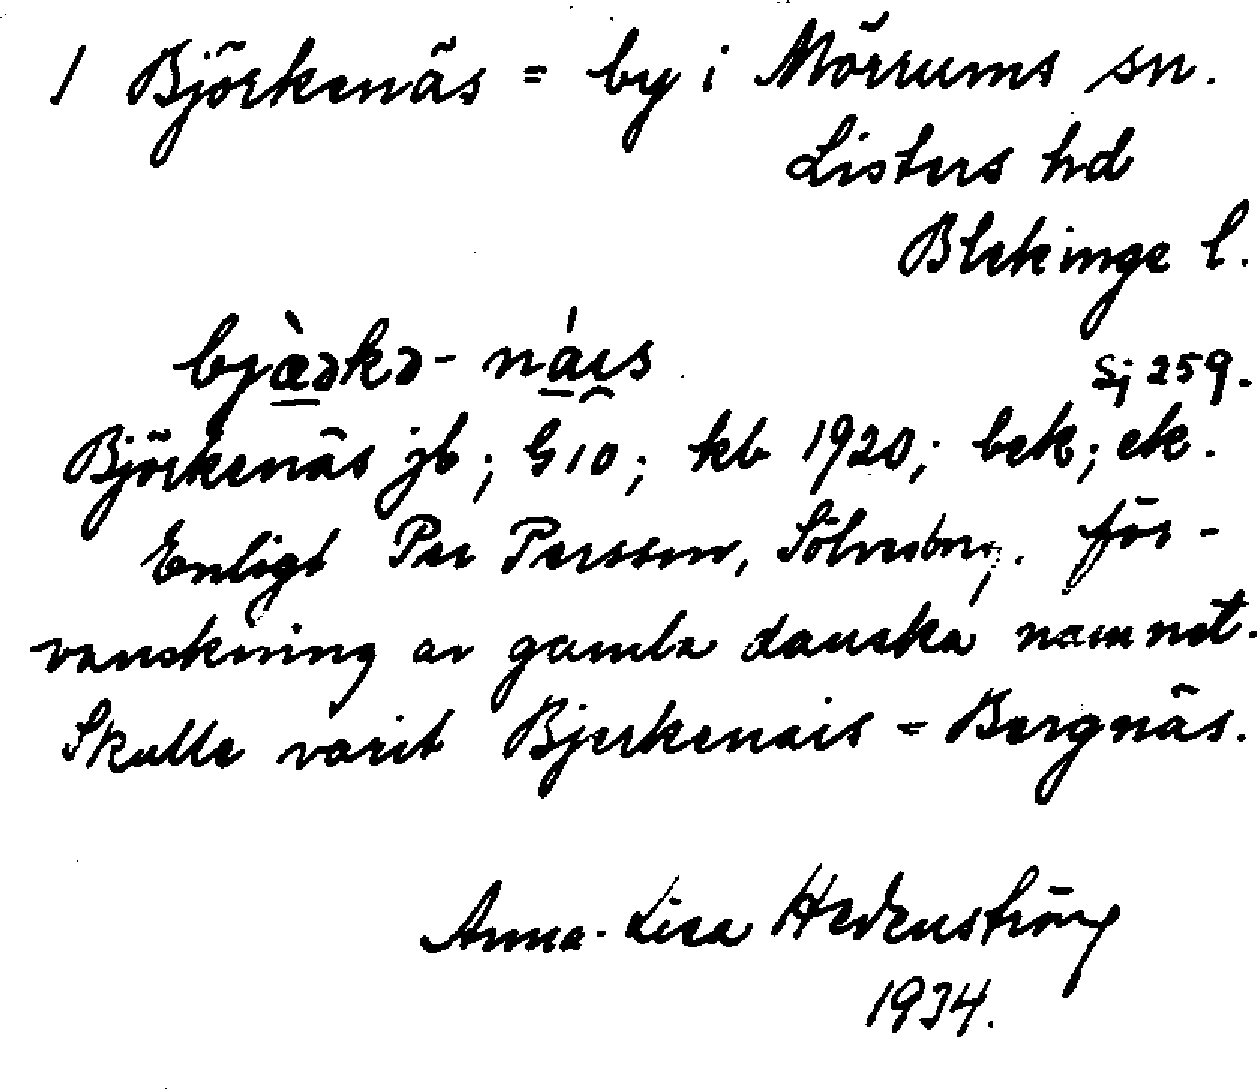 1 Björkenäs = by i Mörrums sn.
Listers hd
Blekinge l.
bjæ̀əkə- náɪs
Sj 259.
Björkenäs jb; G10; kb 1920; bek; ek.
Enligt Per Persson, Sölvesborg. för-
vanskning av gamla danska namnet.
Skulle varit Bjerkenais = Bergnäs.
Anna-Lisa Hedenström
1934.